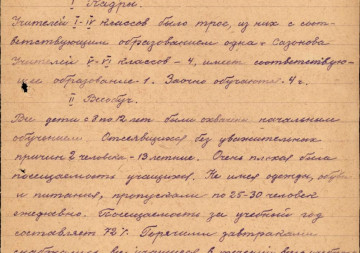 I Кадры.
Учителей I-IV классов было трое, из них с соот-
ветствующим образованием одна - Сазонова
Учителей V-VI класса - 4, имеет соответствую-
щее образование - 1. Заочно обучаются - 4 ч.
II Всеобуч.
Все дети с 8 по 12 лет были охвачены начальным
обучением. Отсеявшихся без уважительных
причин 2 человека - 13-летние. Очень плохая была
посещаемость учащихся. Не имея одежды, обуви
и питания, пропускали по 25-30 человек
ежедневно. Посещаемость за учебный год
составляет 72%. Горячими завтраками
снабжались все учащиеся в течении